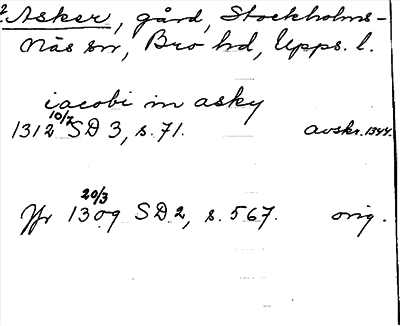 2 Asker, gård, Stockholms-
Näs sn, Bro hd, Upps. l.
iacobi in asky
1312 10/7 SD 3, s. 71. avskr. 1344.
Jfr 1309 20/3 SD 2, s. 567. orig.